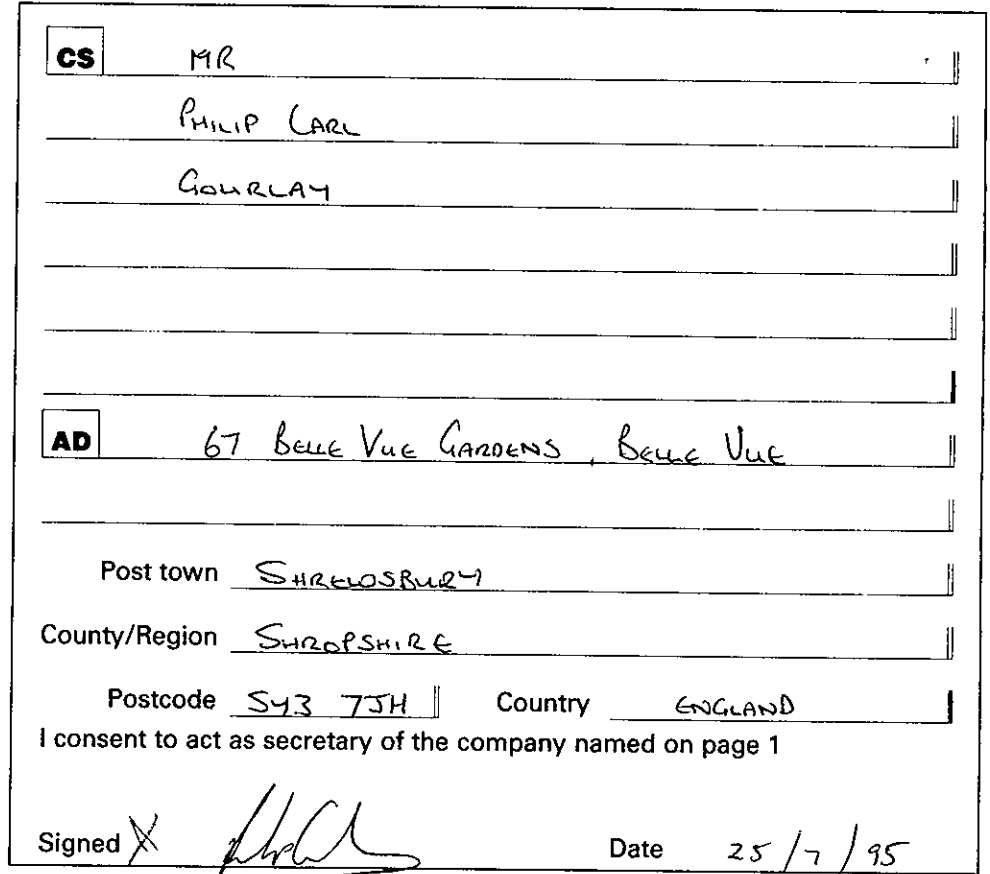 CS MR
PHILIP CARL
GOURLAY
AD 67 BELLE VUE GARDENS, BELLE VUE
Post town SHREWSBURY
County/Region SHROPSHIRE
Postcode SY3 7JH Country ENGLAND
I consent to act as secretary of the company named on page 1
Signed X Date 25/7/95